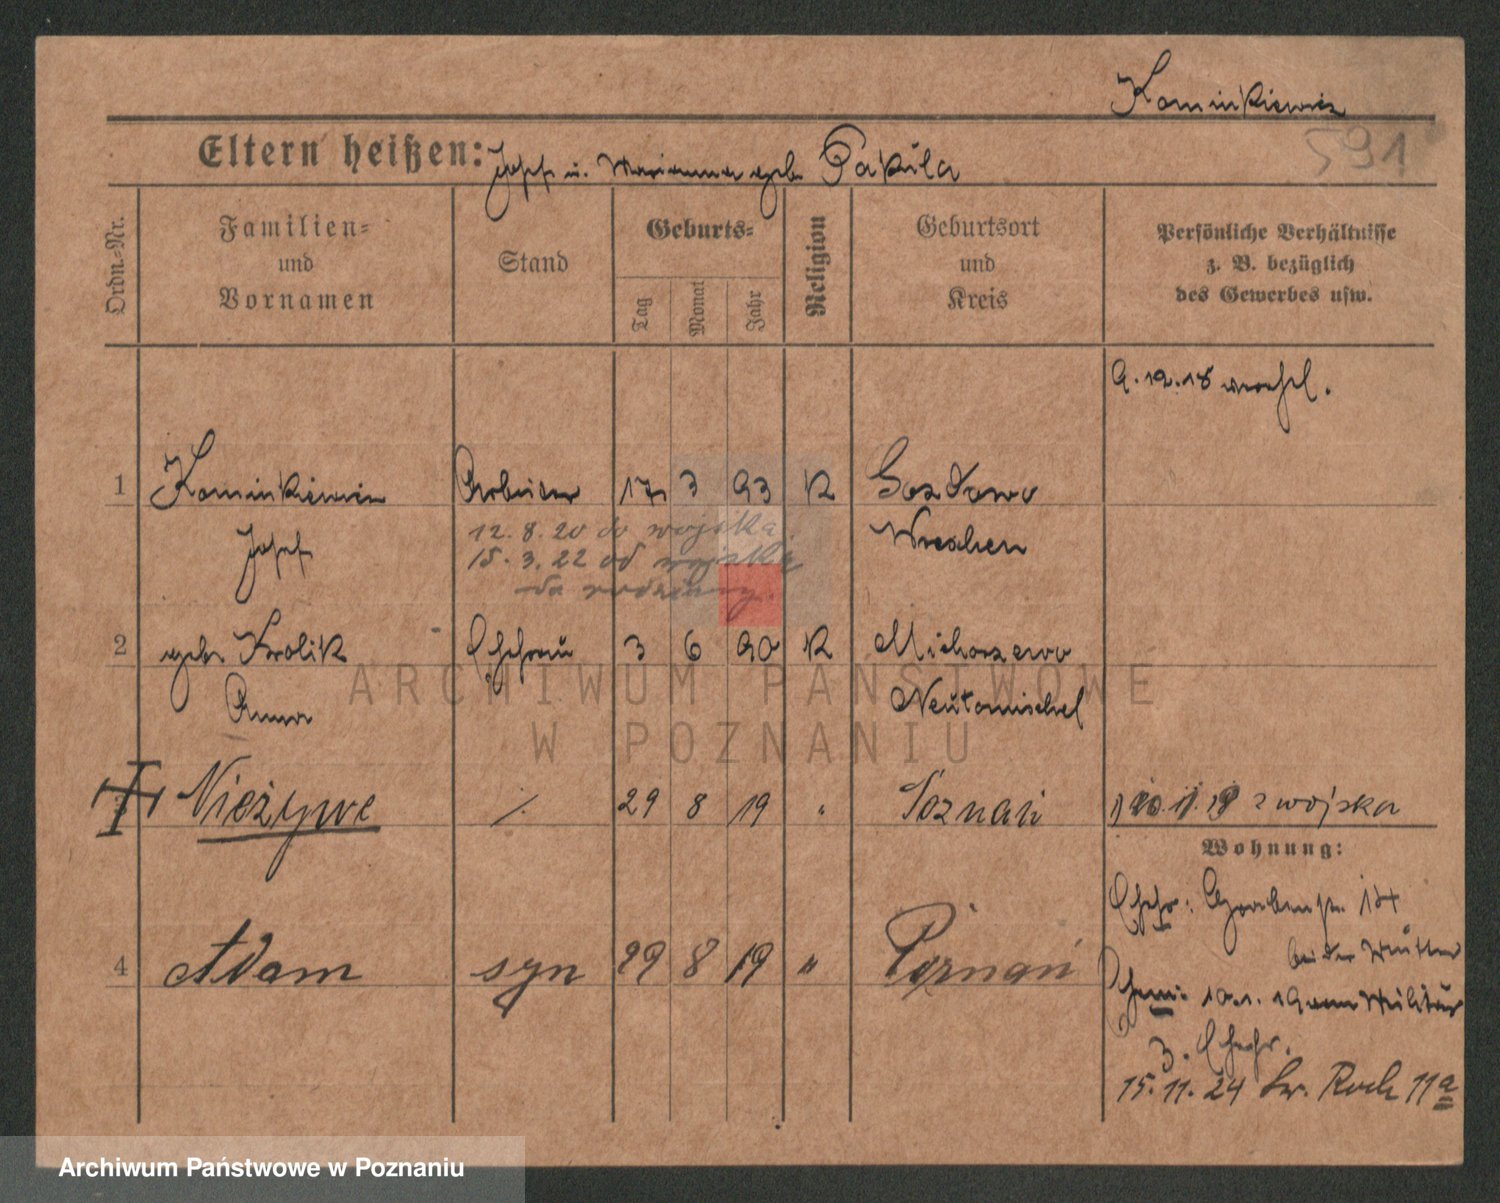 Kominkiewicz
Eltern heißen: Josef u. Marianna geb. Pakula
591
Ordn.-Nr.
Familien-
und
Vornamen
Stand
Geburts-
Tag
Monat
Jahr
Religion
Geburtsort
und
Kreis
Persönliche Verhältnisse
z. B. bezüglich
des Gewerbes usw.
9.12.18
1 Kominkiewicz Arbeiter 17 3 93 K Gozdowo
Josef
12.8.20 do wojska
15.3.22 od wojska
do rodziny.
Wreschen
2 geb. Krolik Ehefrau 3 6 90 K Michorzewo
Anna Neutomischel
Nieżywe 29 8 19 " Poznań z wojska
Wohnung:
4 Adam syn 29 8 19 " Poznań
Ehefr: Grabenstr. 14
bei der Mutter
Ehem: 10.1.19 vom Militär
z. Ehefr.
15.11.24 Św. Roch 11a
ARCHIWUM PAŃSTWOWE
W POZNANIU
Archiwum Państwowe w Poznaniu